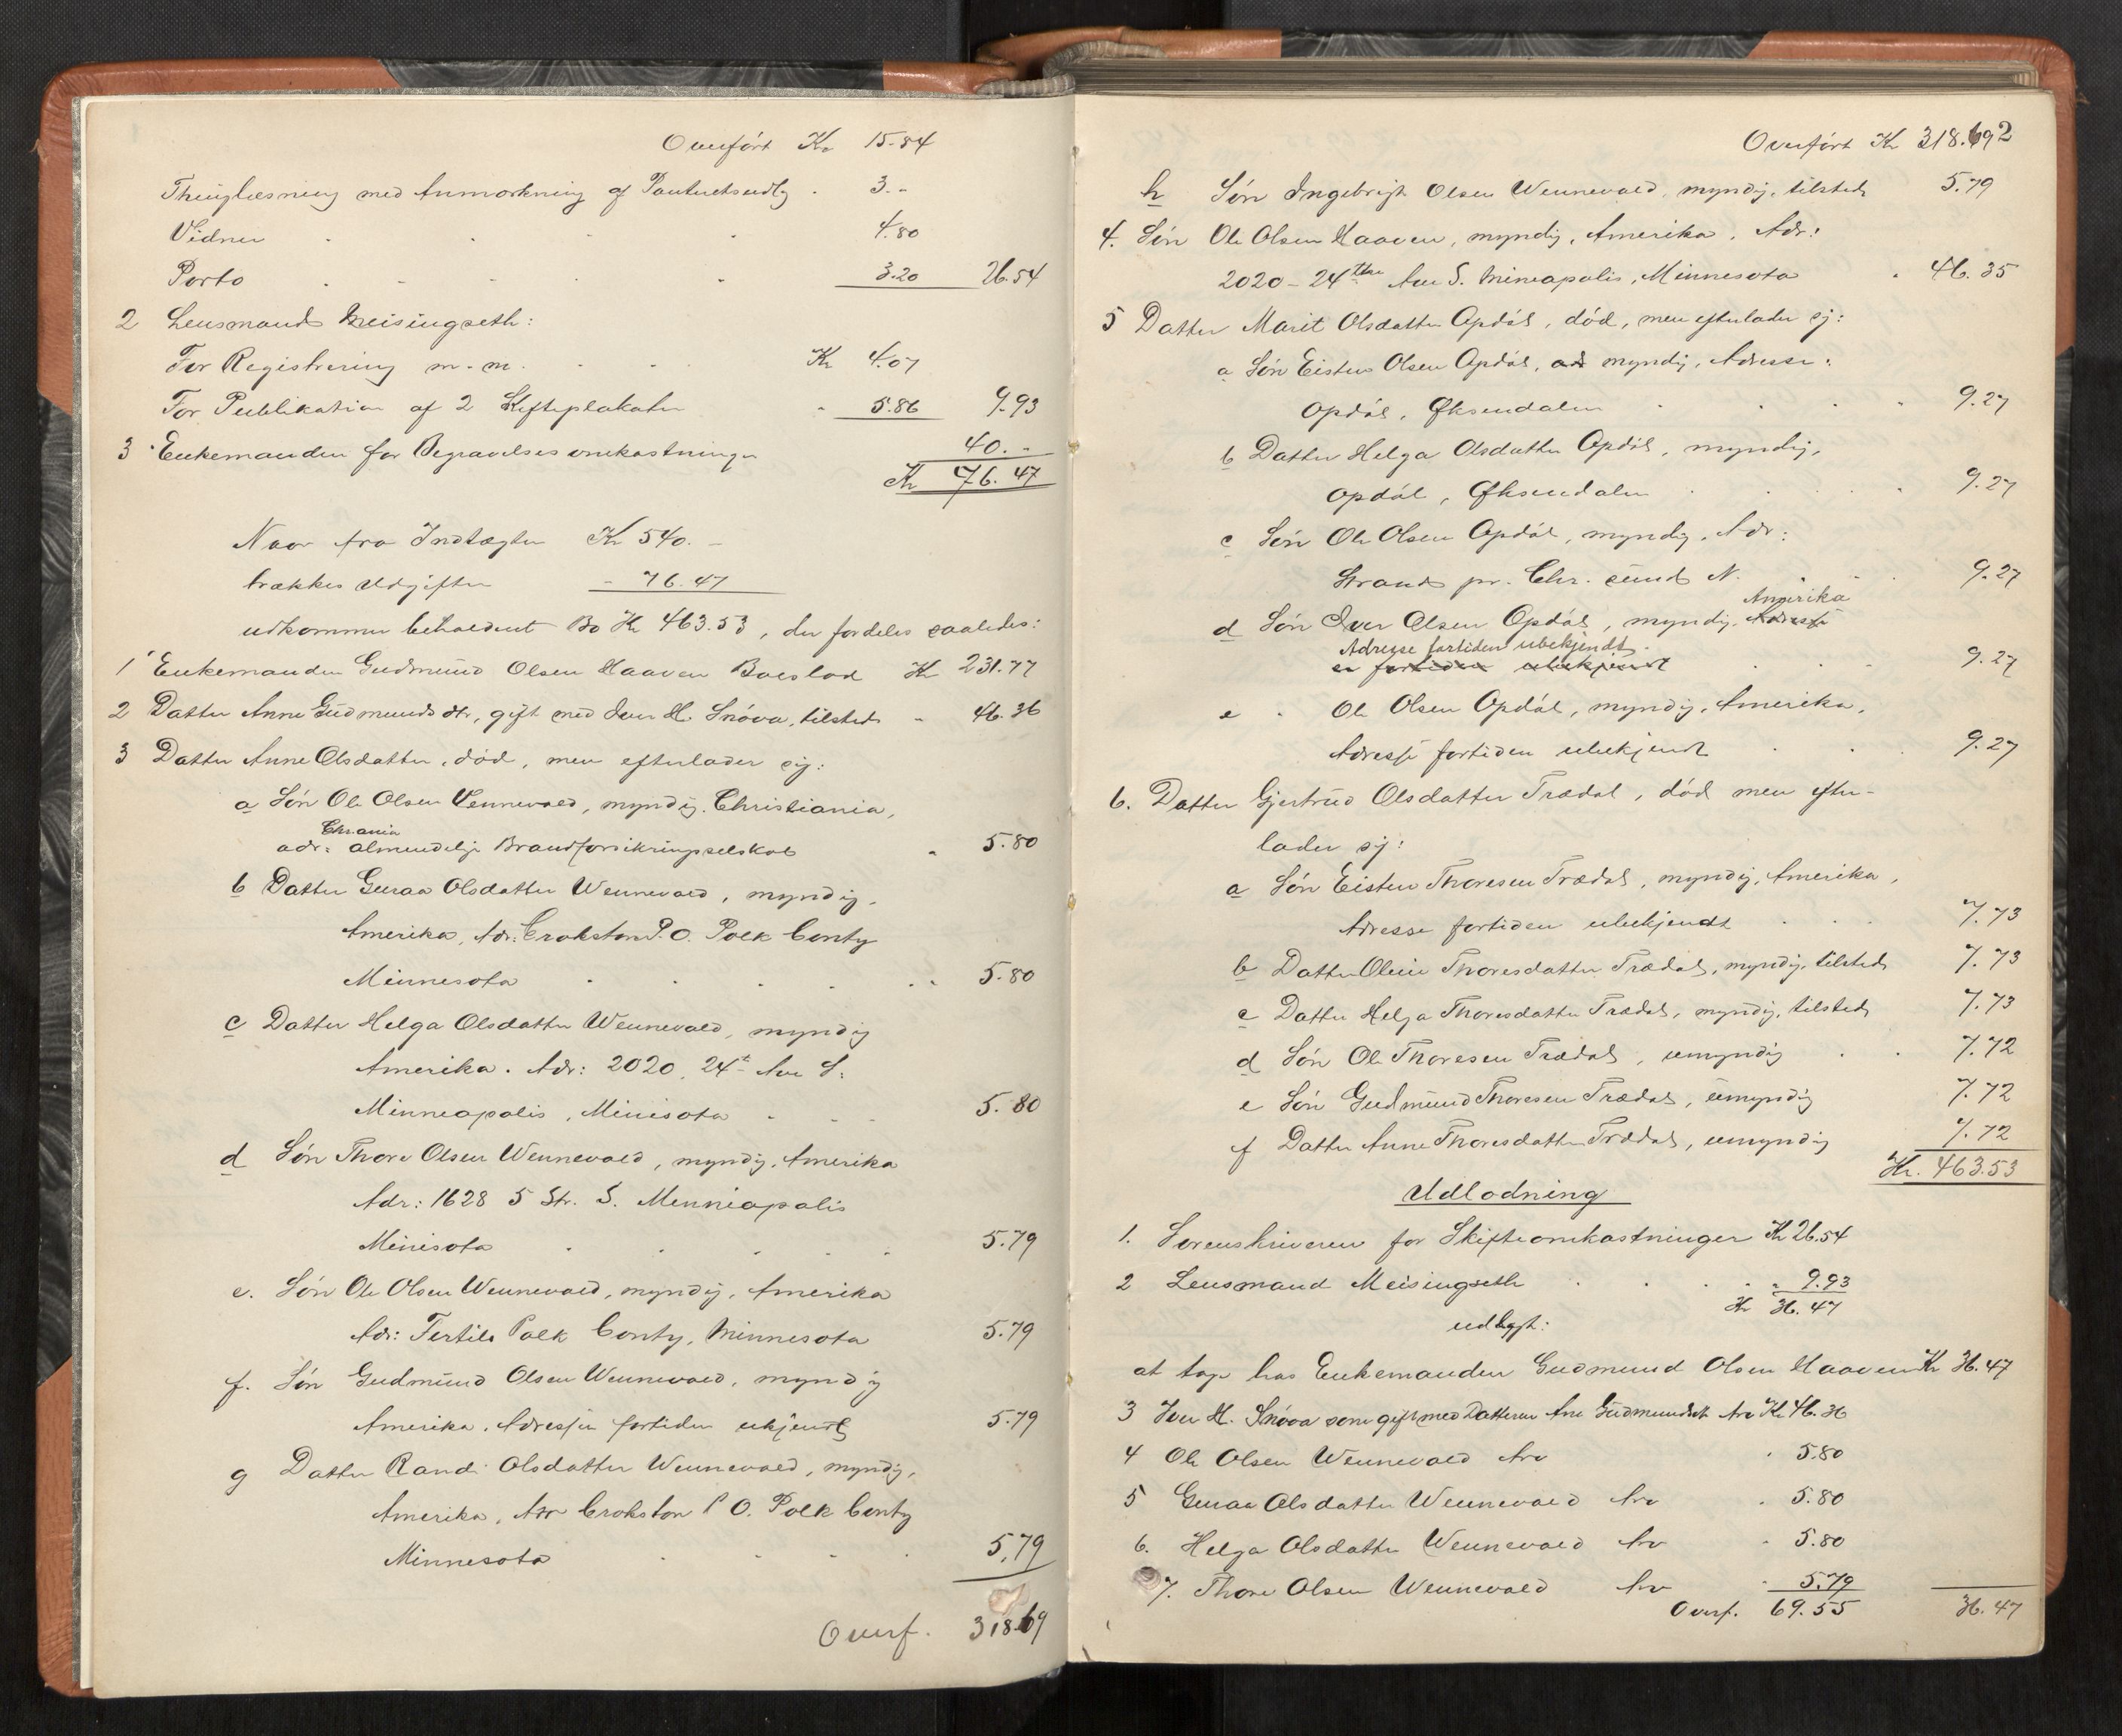 Overført Kr 15.84
Thinglæsning med Anmærkning af Panteretsudlg . 3.-
Vidner 4.80
Porto 3.20 26.54
2 Lensmand Meisingseth:
For Registrering m.m. Kr 4.07
For Publikation af 2 Skifteplakater 5.86 9.93
3 Enkemanden for Begravelsesomkostninger 40.-
Kr 76.47
Naar fra Indtægten Kr 540.-
trækkes Udgiften - 76.47
udkommer beholdent Bo Kr 463.53, der fordeles saaledes:
1 Enkemanden Gudmund Olsen Haaven Boeslod Kr 231.77
2 Datter Anne Gudmundsdtr, gift med Iver H. Snøva, tilsteds 46.36
3 Datter Anne Olsdatter, død, men efterlader sig:
a Søn Ole Olsen Vennevold, myndig. Christiania,
Chr.ania
adr: almindelige Brandforsikringsselskab 5.80
b Datter Guraa Olsdatter Wennevold, myndig,
Amerika, Adr: Crokston P.O. Polk Conty
Minnesota 5.80
c Datter Helga Olsdatter Wennevold, myndig
Amerika. Adr: 2020, 24t Ave S.
Minneapolis, Minisota 5.80
d Søn Thore Olsen Wennevold, myndig, Amerika
Adr: 1628 5 Str. S. Menniapolis
Minisota 5.79
e. Søn Ole Olsen Wennevold, myndig, Amerika
Adr: Fertile Polk Conty, Minnesota 5.79
f. Søn Gudmund Olsen Wennevold, myndig
Amerika. Adresse fortiden ukjendt 5.79
g Datter Randi Olsdatter Wennevold, myndig,
Amerika, Adr Crokston P O. Polk Conty
Minnesota 5.79
Overf. 318.69
Overført Kr 318.69 2
h Søn Ingebrigt Olsen Wennevold, myndig, tilsteds 5.79
4. Søn Ole Olsen Haaven, myndig, Amerika, Adr:
2020 - 24the Ave S. Mineapolis, Minnesota 46.35
5 Datter Marit Olsdatter Opdøl, død, men efterlader sig:
a Søn Eisten Olsen Opdøl, myndig, Adresse:
Opdøl, Øksendalen 9.27
b Datter Helga Olsdatter Opdøl, myndig,
Opdøl, Øksendalen 9.27
c Søn Ole Olsen Opdøl, myndig, Adr:
Strand pr. Chr.sund N. 9.27
Amerika
d Søn Iver Olsen Opdøl, myndig, Adresse
Adresse fortiden ubekjendt
er fortiden ubekjendt 9.27
e " Ole Olsen Opdøl, myndig, Amerika,
Adresse fortiden ubekjendt 9.27
6. Datter Gjertrud Olsdatter Trædal, død men efter-
lader sig:
a Søn Eisten Thoresen Trædal, myndig, Amerika,
Adresse fortiden ubekjendt 7.73
b Datter Oline Thoresdatter Trædal, myndig, tilsteds 7.73
c Datter Helga Thoresdatter Trædal, myndig, tilsteds 7.73
d Søn Ole Thoresen Trædal, umyndig 7.72
e Søn Gudmund Thoresen Trædal, umyndig 7.72
f Datter Anne Thoresdatter Trædal, umyndig 7.72
Kr. 463.53
Udlodning
1. Sorenskriveren for Skifteomkostninger Kr 26.54
2 Lensmand Meisingseth 9.93
Kr 36.47
udlagt:
at tage hos Enkemanden Gudmund Olsen Haaven Kr 36.47
3 Iver H. Snøva som gift med Datteren Ane Gudmundsdt Arv Kr 46.36
4 Ole Olsen Wennevold Arv 5.80
5 Guraa Olsdatter Wennevold Arv 5.80
6. Helga Olsdatter Wennevold Arv 5.80
7. Thore Olsen Wennevold Arv 5.79
Overf. 69.55 36.47